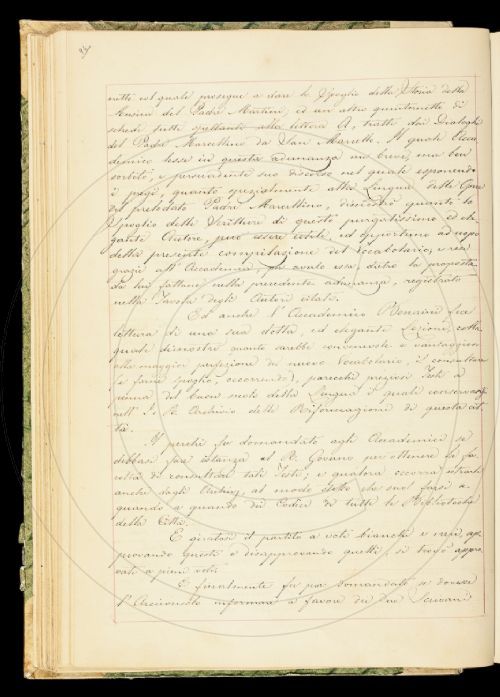 netto col quale prosegue a dare lo Spoglio della Storia della
Musica del Padre Martini; ed un altro quinternetto di
schede tutte spettanti alla lettera A, tratte dai Dialoghi
del Padre Marcellino da San Marcello. Il quale Acca-
demico lesse in questa adunanza un breve, ma ben
sentito, e persuadente suo discorso nel quale esponendo
i pregi, quanto spezialmente alla Lingua delle Opere
del prelodato Padre Marcellino, dimostrò quanto lo
Spoglio delle Scritture di questo purgatissimo ed ele-
gante Autore, può essere utile, ed opportuno ad uopo
della presente compilazione del Vocabolario; e rese
grazie all' Accademia, per avere essa, dietro la proposta
da lui fattane nella precedente adunanza, registrato
nella Tavola degli Autori citati.
Ed anche l' Accademico Bencini fece
lettura di una sua dotta, ed elegante Lezione, colla
quale dimostrò quanto sarebbe convenevole e vantaggioso
alla maggior perfezione del nuovo Vocabolario, il consultare
(e farne spoglio, occorrendo), parecchi preziosi Testi a
penna del buon secolo della Lingua i quali conservansi
nell' I. R. Archivio delle Riformagioni di questa cit-
tà.
Il perchè fu domandato agli Accademici se
debbasi fare istanza al R. Governo per ottenere la fa-
coltà di consultare tali Testi; e qualora occorra estrarli
anche dagli Archivj, al modo stesso che suol farsi a
quando a quando dei Codici di tutte le Biblioteche
della Città.
E giratosi il partito a voti bianchi e neri, ap-
provando questi e disapprovando quelli, si trovò appro-
vato a pieni voti.
E finalmente fu poi domandato se dovesse
l' Arciconsolo informare a favore dei due Scrivani